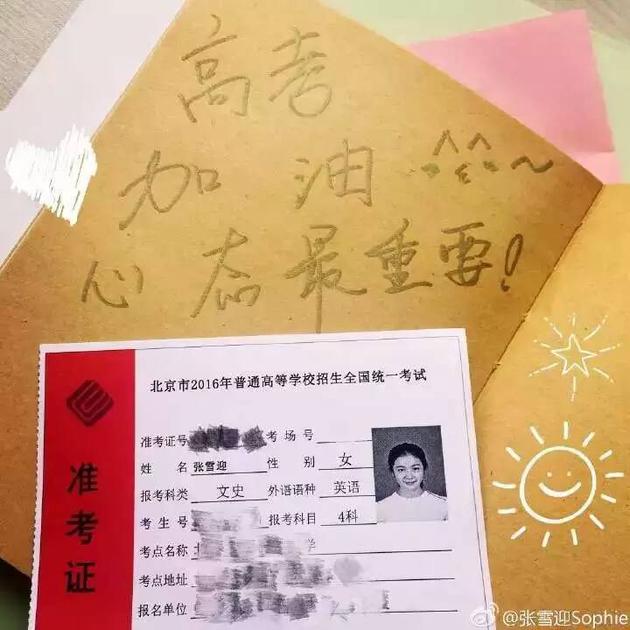 高考
加油
心态最重要!
北京市2016年普通高等学校招生全国统一考试
准考证
准考证号 考场号
姓名 张雪迎 性别 女
报考科类 文史 外语语种 英语
考生号 报考科目 4科
考点名称 北 学
考点地址
报名单位
@张雪迎Sophie